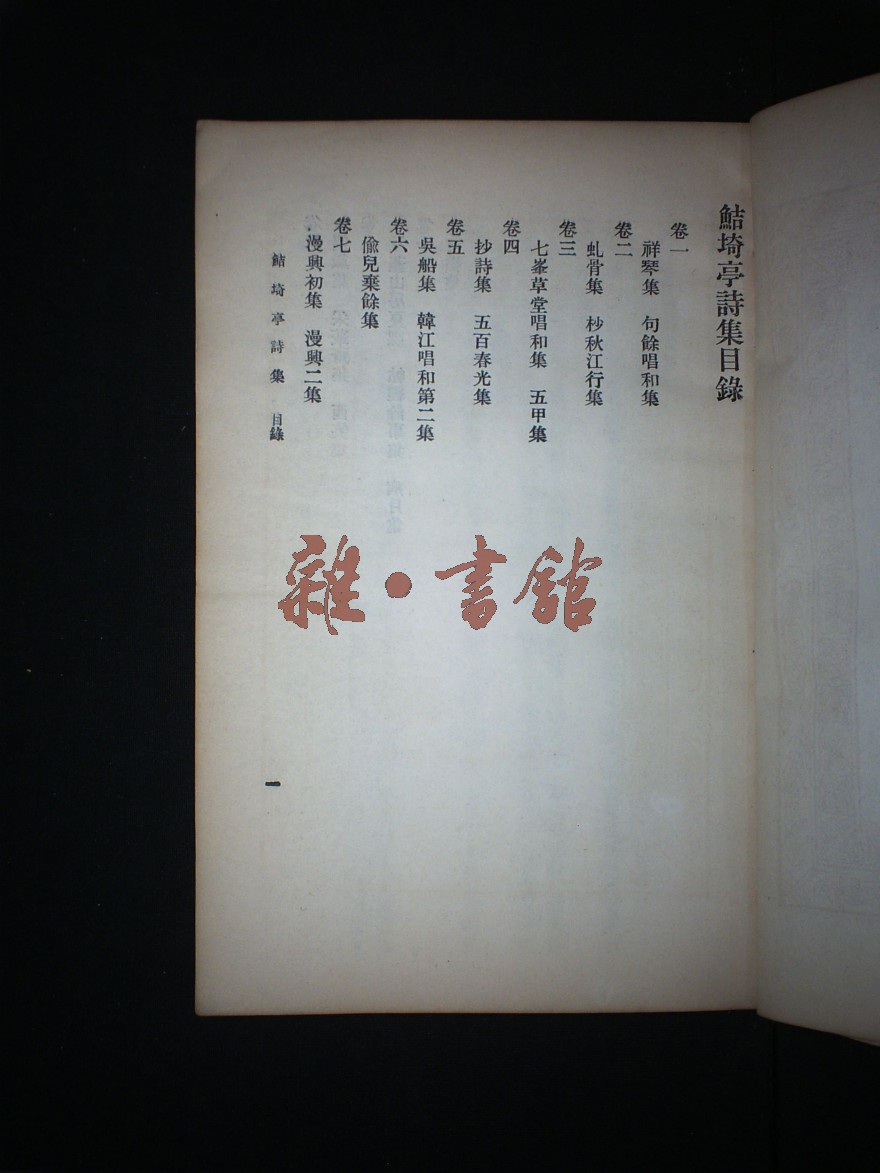 鮚埼亭詩集目錄
卷一
祥琴集　句餘唱和集
卷二
虬骨集　杪秋江行集
卷三
七峯草堂唱和集　五甲集
卷四
抄詩集　五百春光集
卷五
吳船集　韓江唱和第二集
卷六
偸兒棄餘集
卷七
漫興初集　漫興二集
鮚埼亭詩集　目錄
一
雜・書館